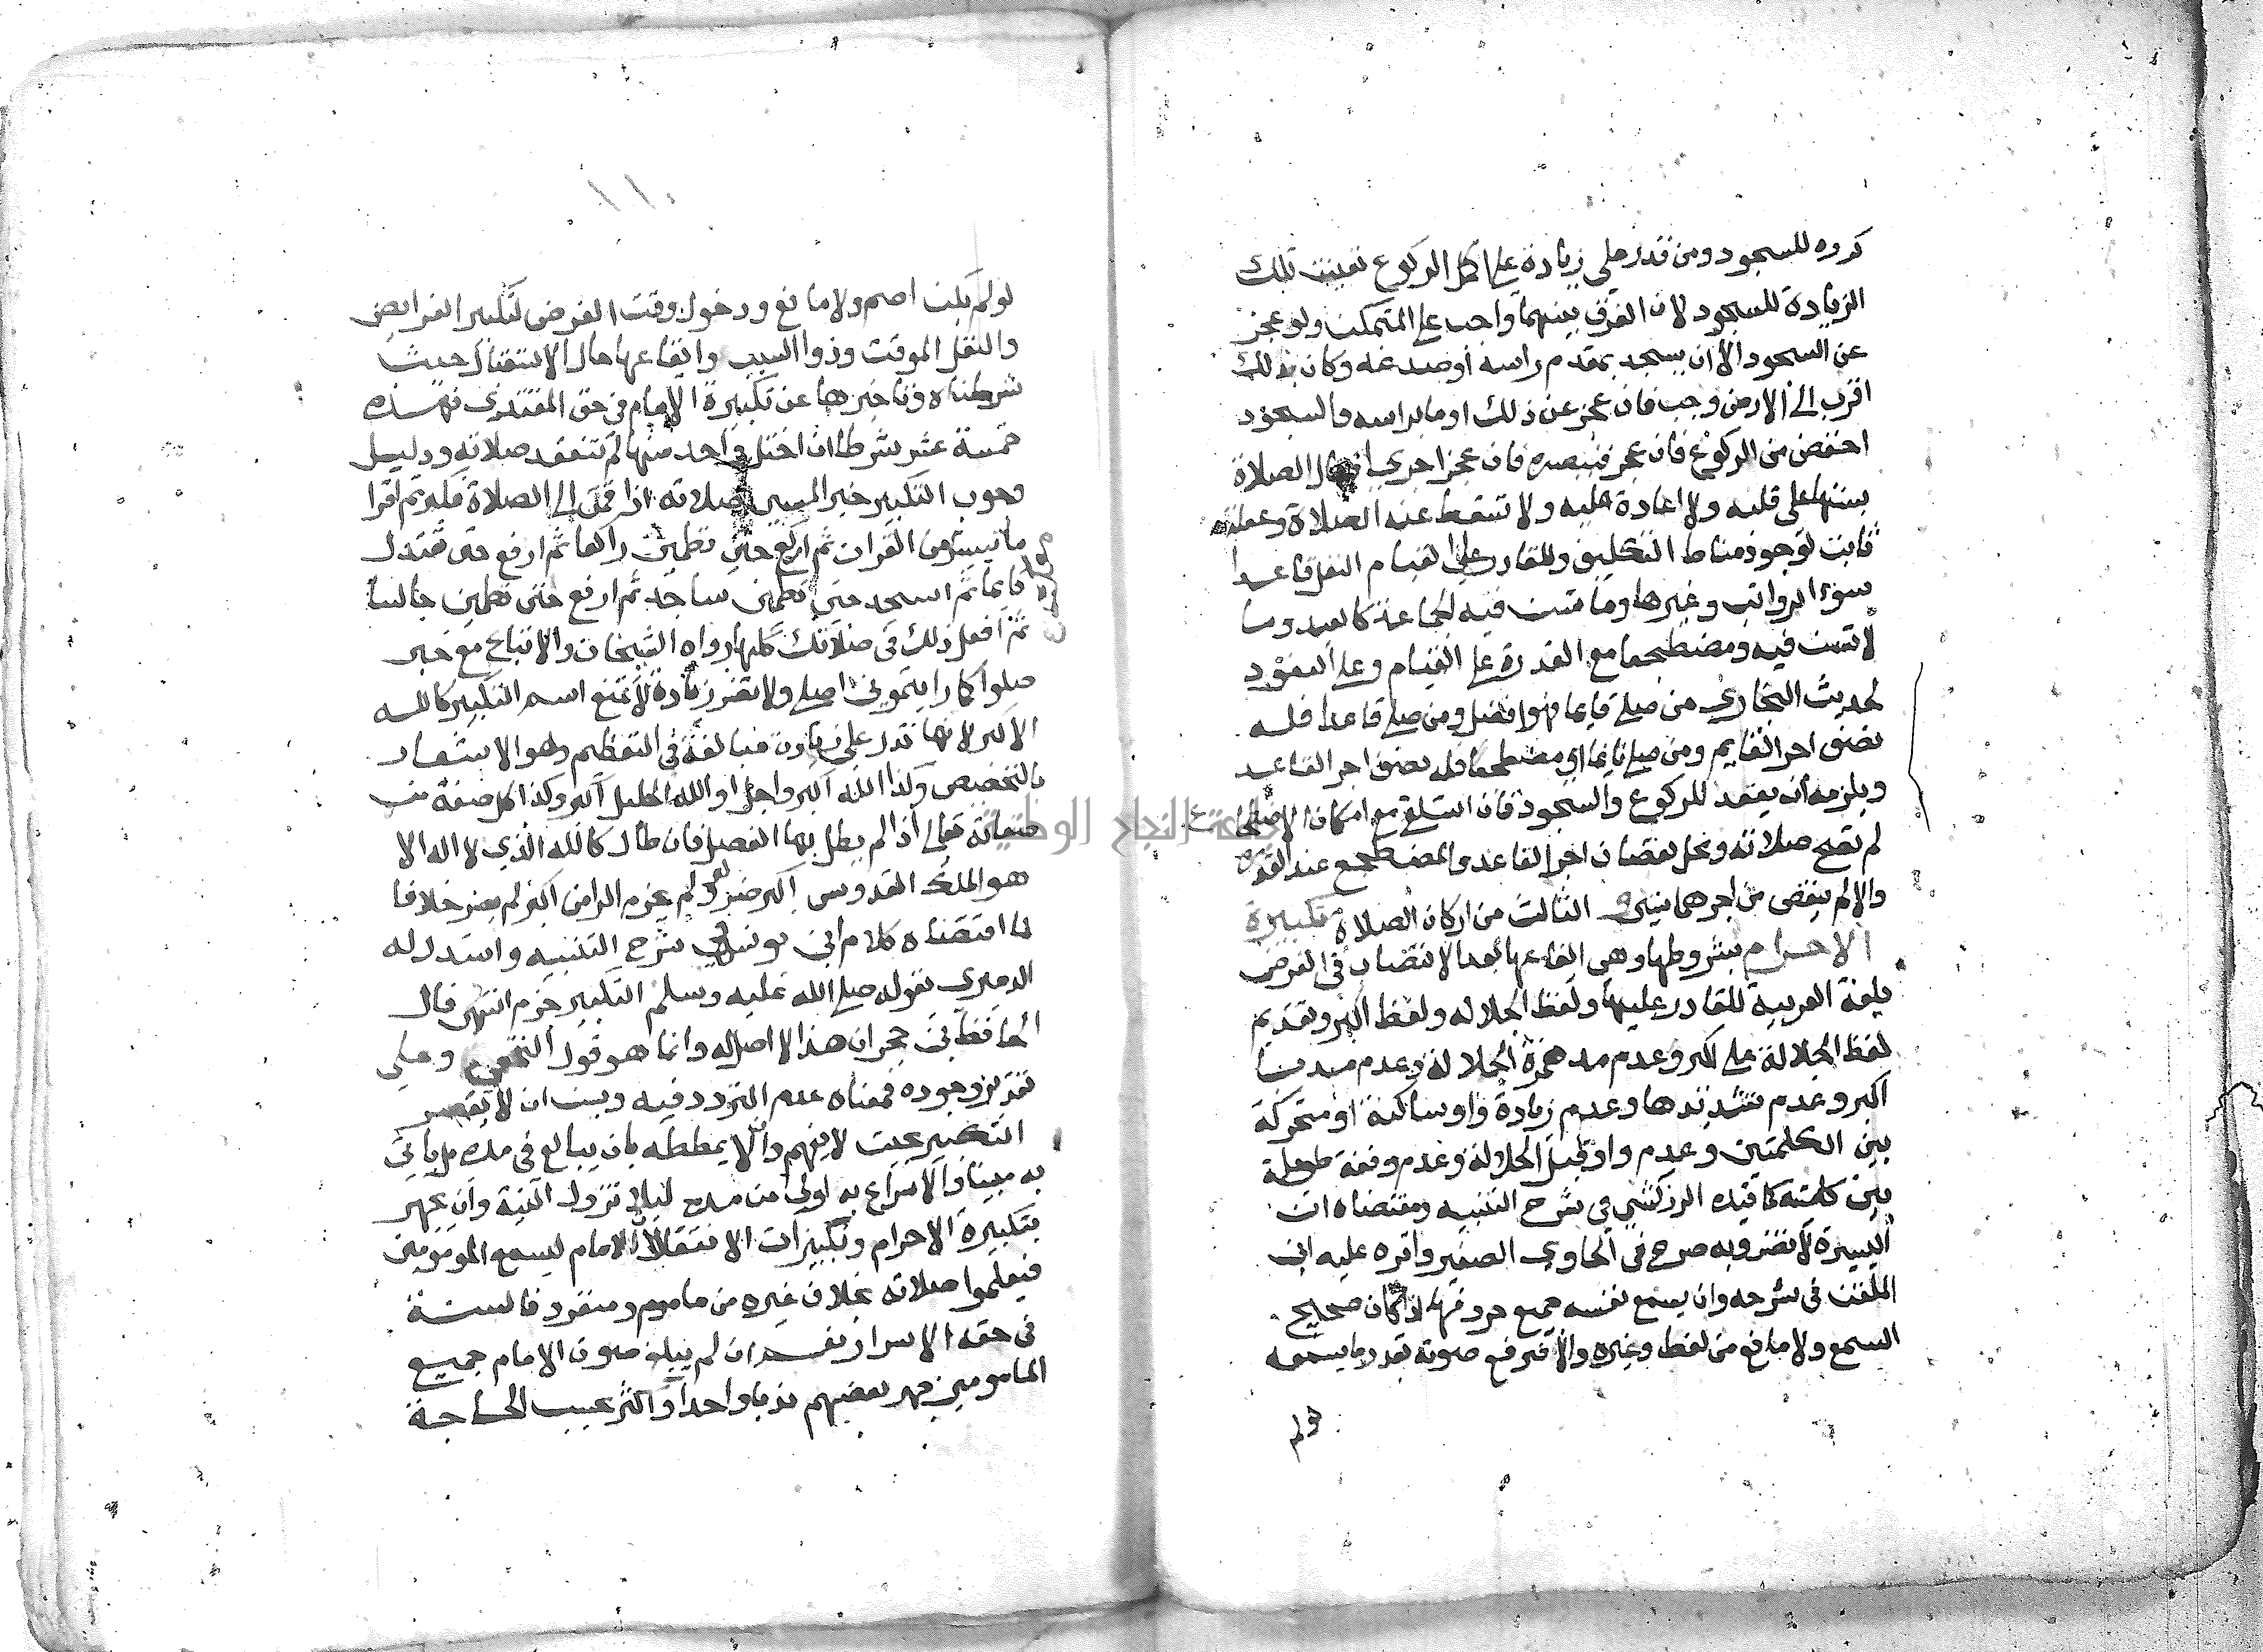 كرره للسجود ومن قدر على زيادة على اكمل الركوع تعينت تلك
الزيادة للسجود لان الفرق بينهما واجب على المتمكن ولو عجز
عن السجود الا ان يسجد بمقدم راسه او صدغه وكان بذلك
اقرب الى الارض وجب فان عجز عن ذلك اوما براسه والسجود
اخفض من الركوع فان عجز فببصره فان عجز اجرى افعال الصلاة
بسننها على قلبه ولا اعادة عليه ولا تسقط عنه الصلاة وعقله
ثابت لوجود مناط التكليف وللقادر على القيام النفل قاعدا
سوء الرواتب وغيرها وما تسن فيه الجماعة كالعيد وما
لا تسن فيه ومضطجعا مع القدرة على القيام وعلى القعود
لحديث البخاري من صلى قايما فهو افضل ومن صلى قاعدا فله
نصف اجر القايم ومن صلى نايما اي مضطجعا فله نصف اجر القاعد
ويلزمه ان يقعد للركوع والسجود فان استلقى مع امكان الاضطجاع
لم تصح صلاته ومحل نقصان اجر القاعد والمضطجع عند القدرة
والا لم ينقص من اجرهما شيء الثالث من اركان الصلاة تكبيرة
الاحرام بشروطها وهي ايقاعها بعد الانتصاب في الفرض
بلغة العربية للقادر عليها ولفظ الجلاله ولفظ اكبر وتقديم
لفظ الجلالة على اكبر وعدم مد همزة الجلالة وعدم مد با
اكبر وعدم تشديدها وعدم زيادة واو ساكنة او متحركة
بين الكلمتين وعدم واو قبل الجلالة وعدم وقفة طويلة
بين كلمتيه كما قيده الزركشي في شرح التنبيه ومقتضاه ان
اليسيرة لا تضر وبه صرح في الحاوي الصغير واقره عليه ابن
الملقن في شرحه وان يسمع نفسه جميع حروفها اذا كان صحيح
السمع ولا مانع من لغط وغيره والا فيرفع صوته بقدر ما يسمعه
لو لم
لو لم يكن اصم ولا مانع ودخول وقت الفرض لتكبير الفرايض
والنفل الموقت وذو السبب وايقاعها حال الاستقبال حيث
شرطناه وتاخيرها عن تكبيرة الامام في حق المقتدي فهذه
خمسة عشر شرطا ان اختل واحد منها لم تنعقد صلاته ودليل
وجوب التكبير خبر المسيء صلاته اذا قمت الى الصلاة فكبر ثم اقرا
ما تيسر من القران ثم اركع حتى تطمين راكعا ثم ارفع حتى تعتدل
قايما ثم اسجد حتى تطمين ساجدا ثم ارفع حتى تطمين جالسا
ثم افعل ذلك في صلاتك كلها رواه الشيخان والاتباع مع خبر
صلوا كما رايتموني اصلي ولا تضر زيادة لا تمنع اسم التكبير كالله
الاكبر لانها تدل على زيادة مبالغة في التعظيم وهو الاشعار
بالتخصيص وكذا الله اكبر واجل او الله الجليل اكبر وكذا كل صفة من
صفاته تعالى اذا لم يطل بها الفصل فان طال كالله الذي لا اله الا
هو الملك القدوس اكبر ضر ولو لم يجزم الرا من اكبر لم يضر خلافا
لما اقتضاه كلام ابن يونس في شرح التنبيه واستدل له
الدميري بقوله صلى الله عليه وسلم التكبير جزم انتهى قال
الحافظ بن حجر ان هذا لا اصل له وانما هو قول النخعي وعلى
تقدير وجوده فمعناه عدم التردد فيه ويسن ان لا يقصر
التكبير بحيث لا يفهم وان لا يمططه بان يبالغ في مده بل ياتي
به مبينا والاسراع به اولى من مده ليلا تزول النية وان يجهر
بتكبيرة الاحرام وتكبيرات الانتقالات الامام ليسمع المومومين
فيعلموا صلاته بخلاف غيره من ماموم ومنفرد فالسنة
في حقه الاسرار نفسه ان لم يبلغ صوت الامام جميع
المامومين جهر بعضهم ندبا واحدا او اكثر بحسب الحاجة